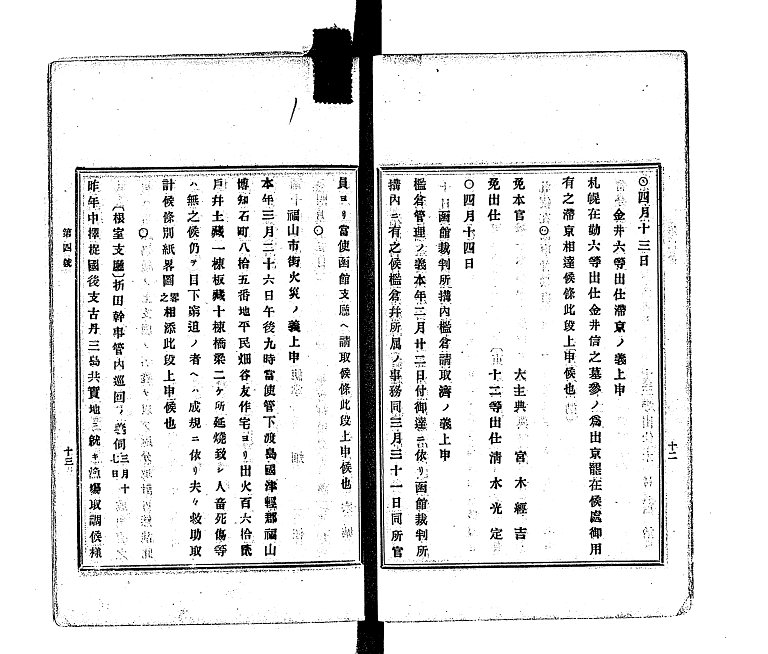 十二
◎四月十三日
金井六等出仕滯京ノ義上申
札幌在勤六等出仕金井信之墓參ノ爲出京罷在候處御用
有之滯京相達候條此段上申候也
◎
免本官 大主典 宮木經吉
免出仕 十二等出仕 淸水光定
〇四月十四日
函館裁判所搆內檻倉請取濟ノ義上申
檻倉管理ノ義本年二月廿二日付御達ニ依リ函館裁判所
搆內ニ有之候檻倉幷所属ノ事務同三月三十一日同所官
員ヨリ當使函館支廳ヘ請取候條此段上申候也
◎
福山市街火災ノ義上申
本年三月二十六日午後九時當使管下渡島國津輕郡福山
博知石町八拾五番地平民畑谷友作宅ヨリ出火百六拾
戶幷土藏一棟板藏十棟橋梁二ケ所延燒致シ人畜死傷等
ハ無之候仍テ目下窮迫ノ者ヘハ成規ニ依リ夫々救助取
計候條別紙畧圖畧之相添此段上申候也
〇
〔根室支廳〕折田幹事管內巡回ノ義伺 三月十七日
昨年中擇捉國後支古丹三島共實地ニ就キ漁場取調候樣
第四號
十三